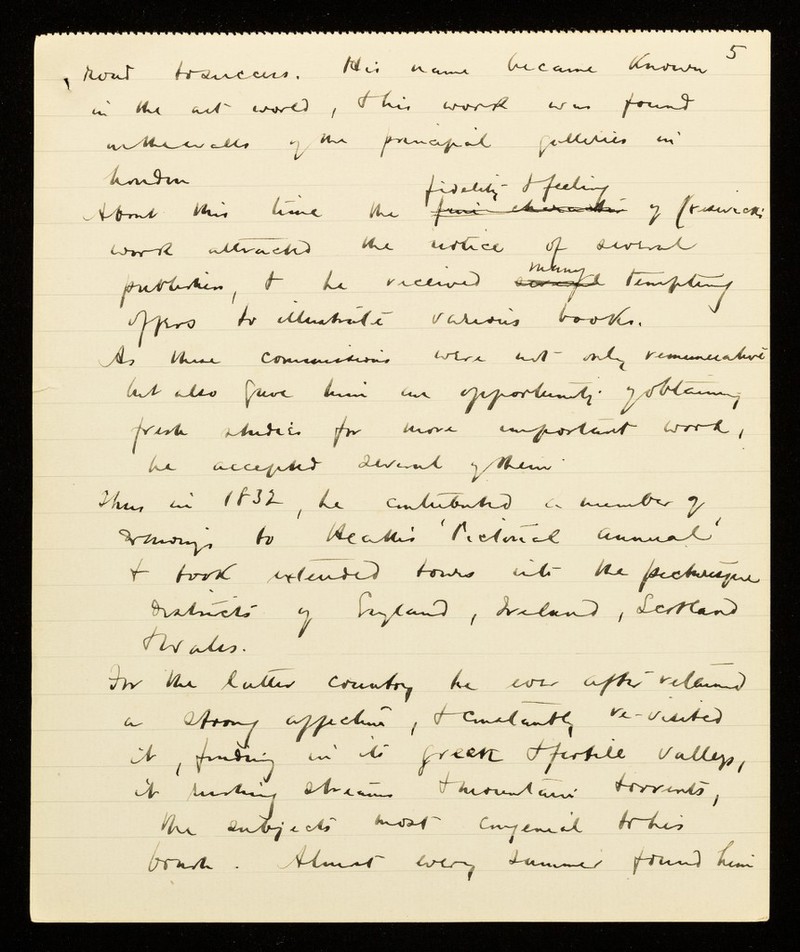 5
road to success. His name became known
in the art world, & his work was found
on the walls of the principal galleries in
London
fidelity & feeling
About this time the fine character of Creswick's
work attracted the notice of several
many
publishers, & he received several tempting
offers to illustrate various books.
As these commissions were not only remunerative
but also gave him an opportunity of obtaining
fresh studies for more important work,
he accepted several of them
Thus in 1832, he contributed a number of
drawings to Heath's 'Pictorial Annual'
& took extended tours into the picturesque
districts of England, Ireland, Scotland
& Wales.
For the latter country he ever after retained
a strong affection, & constantly re-visited
it, finding in its green & fertile valleys,
it rushing streams & mountain torrents,
the subjects most congenial to his
brush. Almost every summer found him